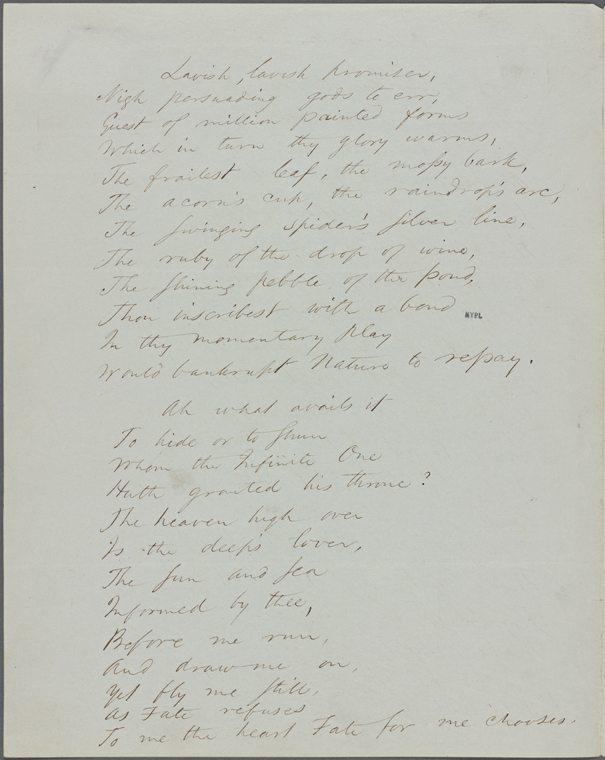 Lavish, lavish promiser,
Nigh persuading gods to err,
Guest of million painted forms
Which in turn thy glory warms,
The frailest leaf, the mossy bark,
The acorn's cup, the raindrop's arc,
The swinging spider's silver line,
The ruby of the drop of wine,
The shining pebble of the pond,
Thou inscribest with a bond
NYPL
In thy momentary play
Would bankrupt Nature to repay.
Ah what avails it
To hide or to shun
Whom the Infinite One
Hath granted his throne?
The heaven high over
Is the deep's lover,
The sun and sea
Informed by thee,
Before me run,
And draw me on,
Yet fly me still,
As Fate refuses
To me the heart Fate for me chooses.